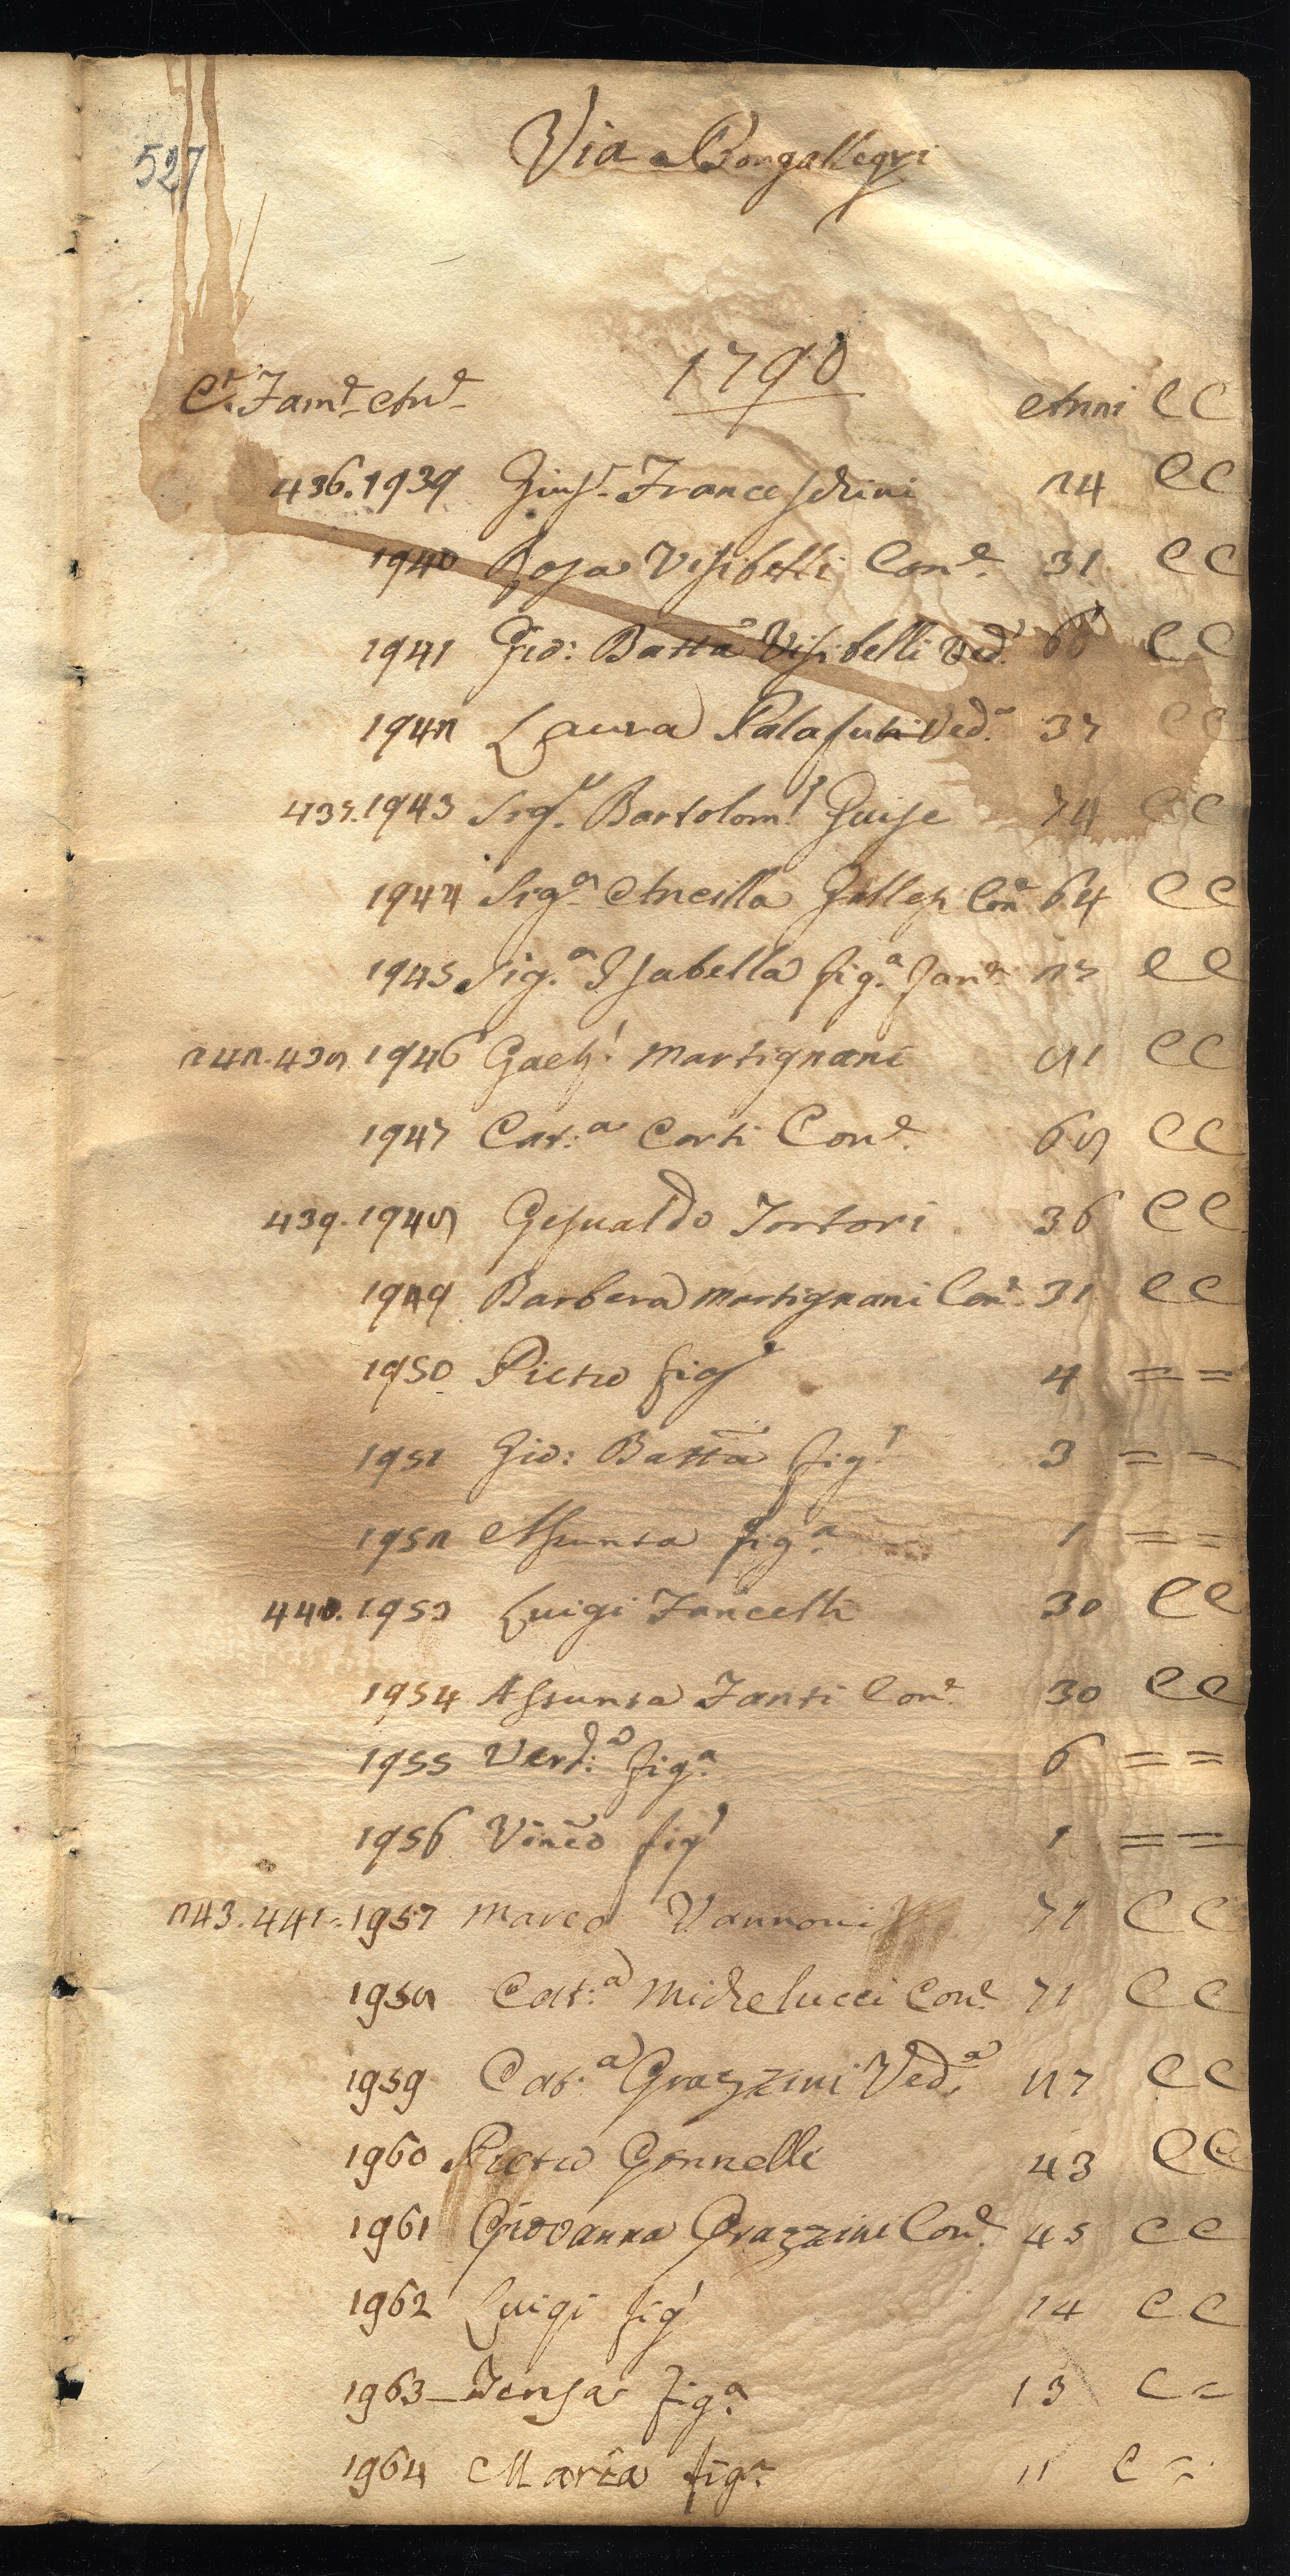 527
Via Bongallegri
1790
C.e Fam.e An.e Anni CC
436. 1939 Gius.e Franceschini 24 CC
1940 Rosa Visibelli Con.e 31 CC
1941 Gio: Batta Visibelli Ved.o CC
1942 Laura Palafuti Ved.a 37 CC
437. 1943 Sig.r Bartolom.o Guise 74 CC
1944 Sig.a Ancilla Con.e 64 CC
1945 Sig.a Isabella fig.a 27 CC
242. 438. 1946 Gaet.o Martignani 81 CC
1947 Cat.a Corti Con.e 68 CC
439. 1948 Gesualdo Tortori 36 CC
1949 Barbera Martignani Con.e 31 CC
1950 Pietro fig.o 4 = =
1951 Gio: Batta fig.o 3 = =
1952 Assunta fig.a 1 = =
440. 1953 Luigi Fancelli 30 CC
1954 Assunta Fanti Con.e 30 CC
1955 Verd.a fig.a 6 = =
1956 Vinco fig.o 1 = =
243. 441. 1957 Marco Vannoni 71 CC
1958 Cat.a Michelucci Con.e 71 CC
1959 Cat.a Grazzini Ved.a CC
1960 Pietro Gonnelli 43 CC
1961 Giovanna Grazzini Con.e 45 CC
1962 Luigi fig.o 14 CC
1963 fig.a 13 C =
1964 Maria fig.a 11 C =